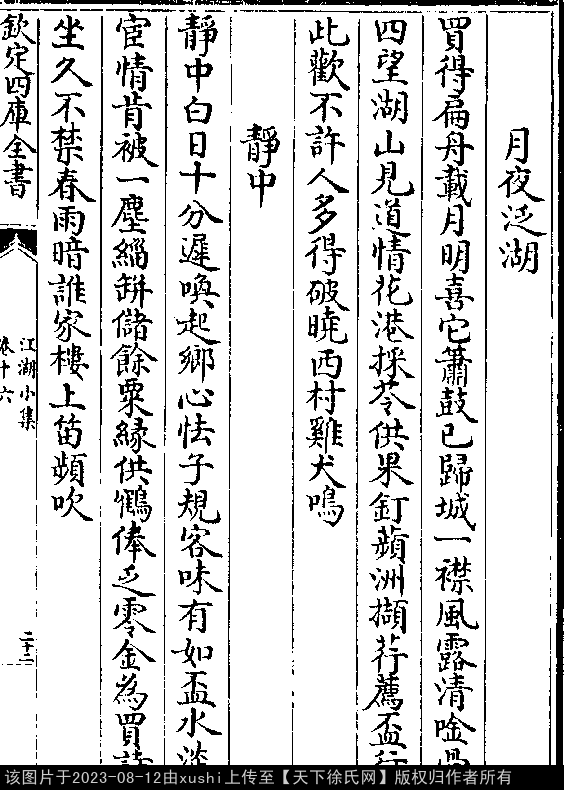 月夜泛湖
買得扁舟載月明喜它簫鼓已歸城一襟風露清唫
四望湖山見道情花港採苓供果飣蘋洲擷荇薦盃
此歡不許人多得破曉西村雞犬鳴
靜中
靜中白日十分遲喚起鄉心怯子規客味有如盃水淡
宦情肯被一塵緇缾儲餘粟緣供鶴俸乏零金為買詩
坐久不禁春雨暗誰家樓上笛頻吹
欽定四庫全書
江湖小集
卷十六
二十二
该图片于2023-08-12由xushi上传至【天下徐氏网】版权归作者所有